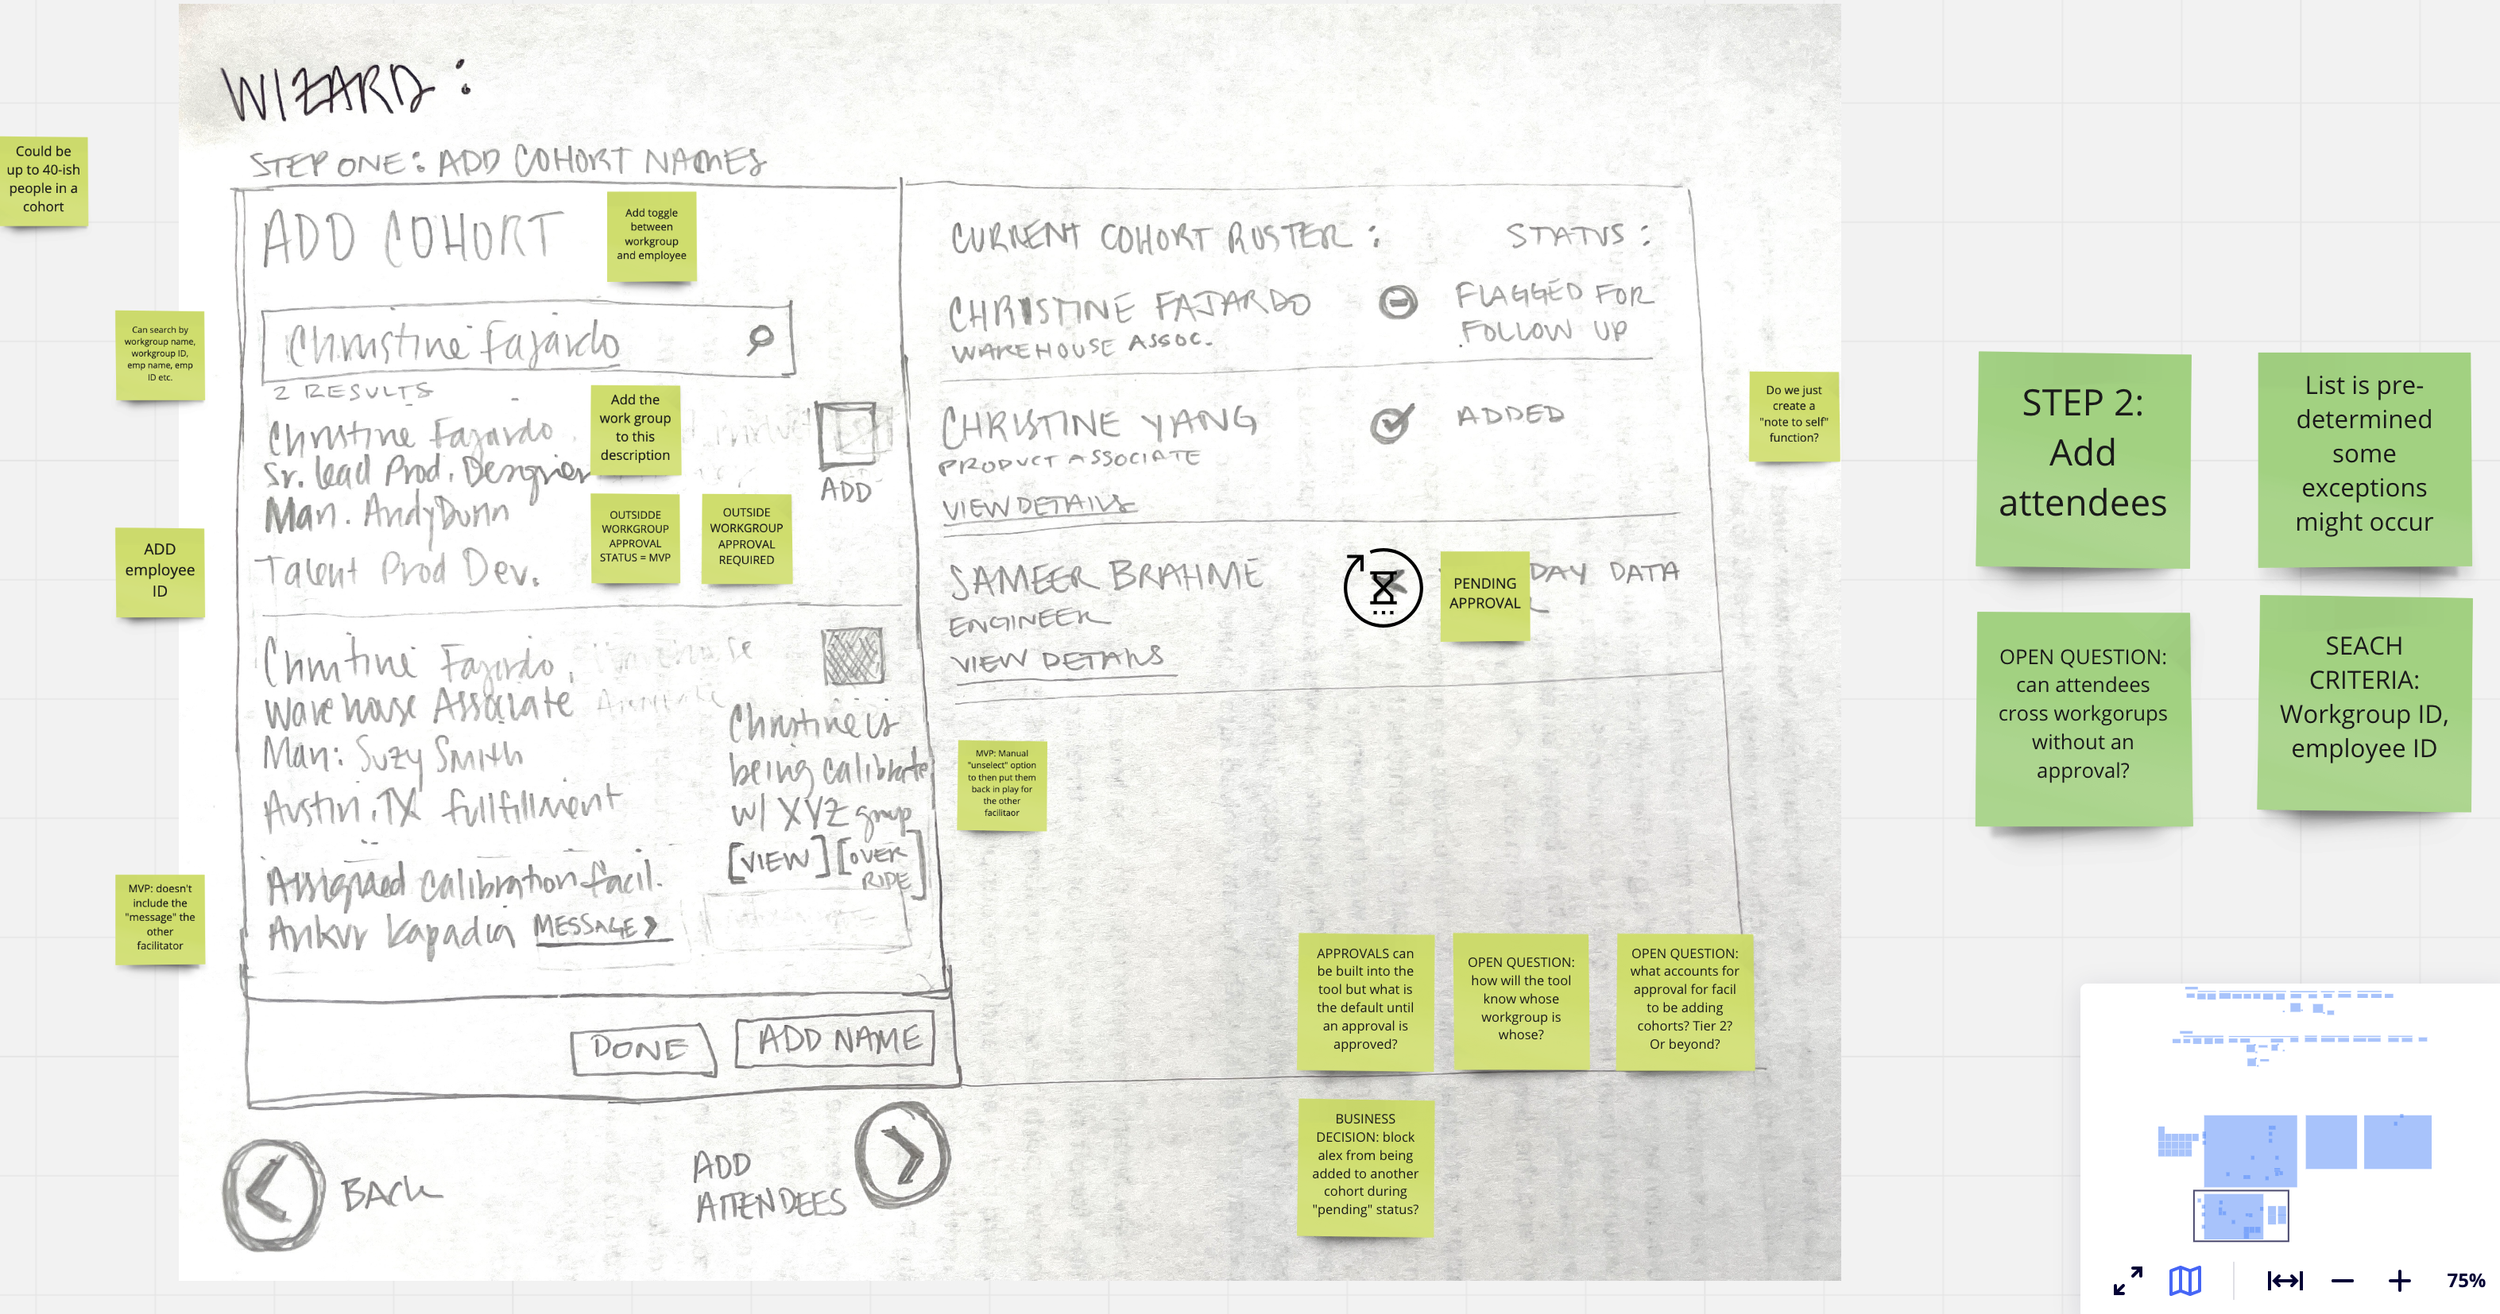 WIZARD:
STEP ONE: ADD COHORT NAMES
Could be
up to 40-ish
people in a
cohort
ADD COHORT
Add toggle
between
workgroup
and employee
Can search by
workgroup name,
workgroup ID,
emp name, emp
ID etc.
Christine Fajardo
2 RESULTS
Christine Fajardo
Sr. Lead Prod. Designer
Man. Andy Dunn
Talent Prod Dev.
Add the
work group
to this
description
ADD
OUTSIDDE
WORKGROUP
APPROVAL
STATUS = MVP
OUTSIDE
WORKGROUP
APPROVAL
REQUIRED
ADD
employee
ID
Christine Fajardo,
Warehouse Associate
Man: Suzy Smith
Austin, TX fullfillment
Christine is
being calibrate
w/ XYZ group
[VIEW] [OVER
RIDE]
Assigned calibration facil.
Ankur Kapadia MESSAGE >
MVP: doesn't
include the
"message" the
other
facilitator
DONE
ADD NAME
BACK
ADD
ATTENDEES
CURRENT COHORT RUSTER:
STATUS:
CHRISTINE FAJARDO
WAREHOUSE ASSOC.
FLAGGED FOR
FOLLOW UP
CHRISTINE YANG
PRODUCT ASSOCIATE
VIEW DETAILS
ADDED
SAMEER BRAHME
ENGINEER
VIEW DETAILS
PENDING
APPROVAL
DAY DATA
Do we just
create a
"note to self"
function?
MVP: Manual
"unselect" option
to then put them
back in play for
the other
facilitaor
APPROVALS can
be built into the
tool but what is
the default until
an approval is
approved?
OPEN QUESTION:
how will the tool
know whose
workgroup is
whose?
OPEN QUESTION:
what accounts for
approval for facil
to be adding
cohorts? Tier 2?
Or beyond?
BUSINESS
DECISION: block
alex from being
added to another
cohort during
"pending" status?
STEP 2:
Add
attendees
List is pre-
determined
some
exceptions
might occur
OPEN QUESTION:
can attendees
cross workgorups
without an
approval?
SEACH
CRITERIA:
Workgroup ID,
employee ID
75%